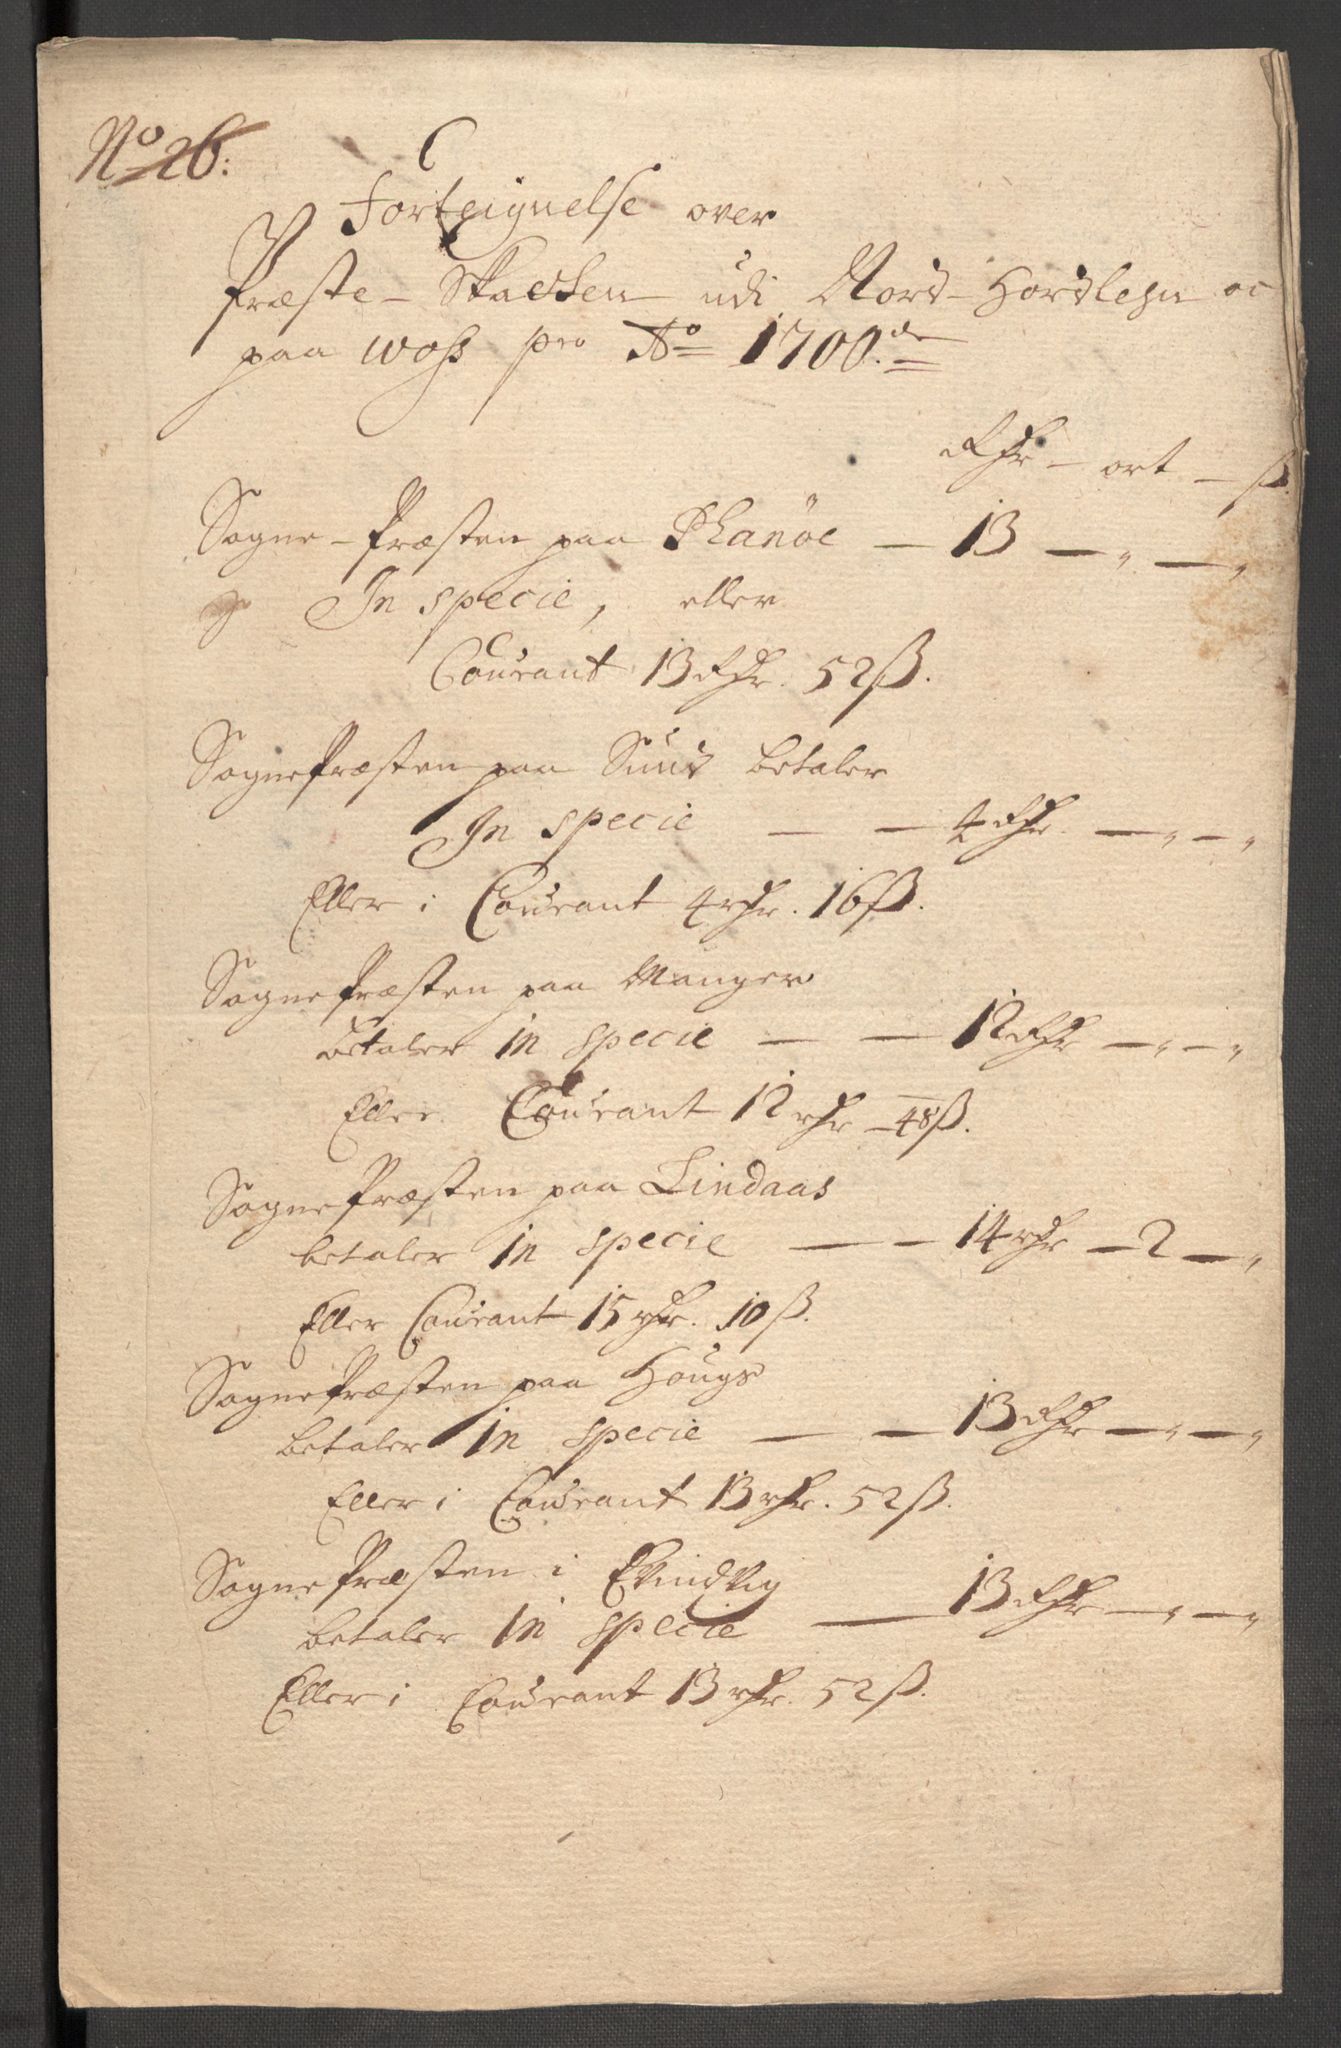 No 26:
Forteignelse over
Præste-Skatten udi Nord-Hordlehn oc
paa Woss pro Ao 1700.de
Rdr - ort - ß.
Sogne-Præsten paa Phanöe — 13 — " — "
In specie, eller
Courant 13 Rdr. 52 ß.
SognePræsten paa Sund betaler
In specie — — 4 Rdr. — " — "
Eller i Courant 4 rdr. 16 ß.
SognePræsten paa Manger
betaler in specie — — 12 Rdr — " — "
Eller Courant 12 rdr — 48 ß.
SognePræsten paa Lindaas
betaler in specie — — 14 rdr — 2 — "
Eller Courant 15 rdr. 10 ß.
SognePræsten paa Hougs
betaler in specie — — 13 Rdr — " — "
Eller i Courant 13 rdr. 52 ß.
SognePræsten i Evindvig
betaler in specie — 13 Rdr — " — "
Eller i Courant 13 rdr. 52 ß.